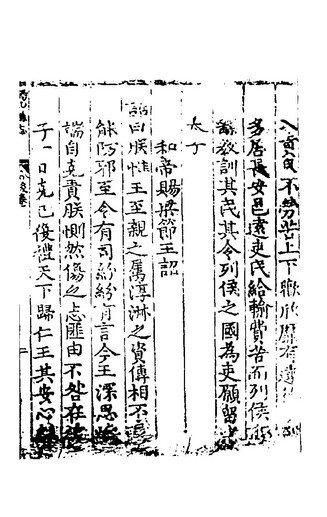 入奮民不勞苦上下驩欣靡有遺
多居長安邑遠吏民給輸費苦而列侯
教訓其民其令列侯之國為吏願留
太子
和帝賜梁節王詔
詔曰朕惟王至親之篤淳淋之資傅相不
能防邪至令有司紛紛有言今王深思
端自克責朕惻然傷之志匪由不咎在
子一日克己復禮天下歸仁王其安心